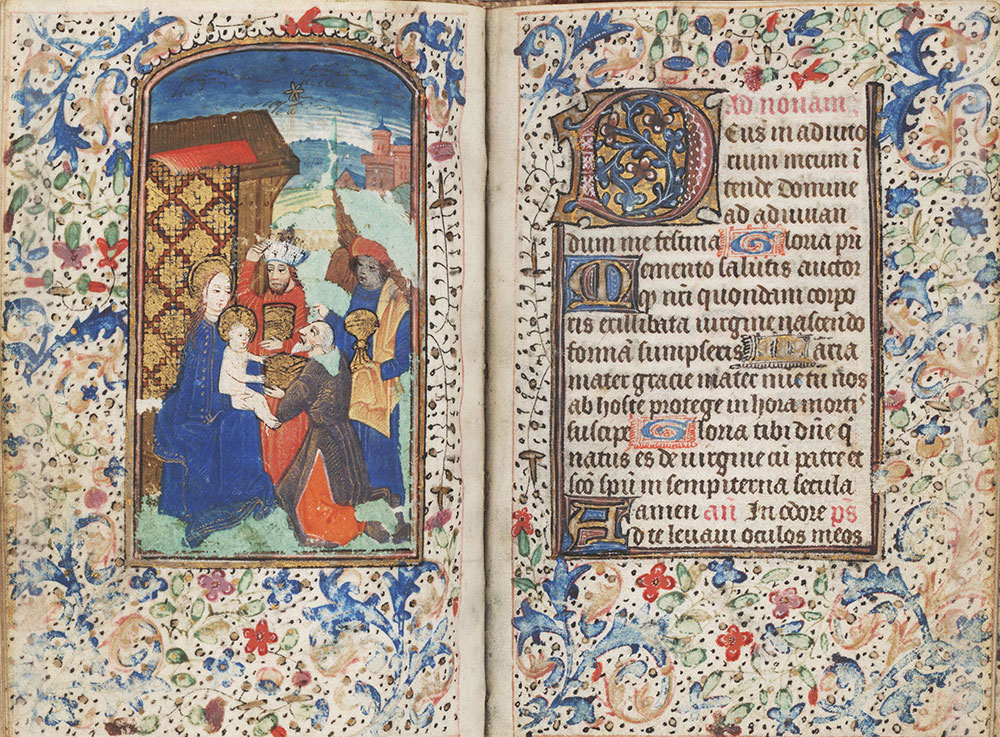 Ad nonam
Deus in adiuto
rium meum i
tende Domine
ad adiuuan
dum me festina Gloria pri
Memento salutis auctor
q nri quondam corpo
ris ex illibata uirgine nascendo
formã sumpseris Maria
mater gracie mater mie tu nos
ab hoste protege in hora morti
suscipe Gloria tibi dñe q
natus es de uirgine cũ patre et
sco spũ in sempiterna secula
amen an In odore ps
Ad te leuaui oculos meos